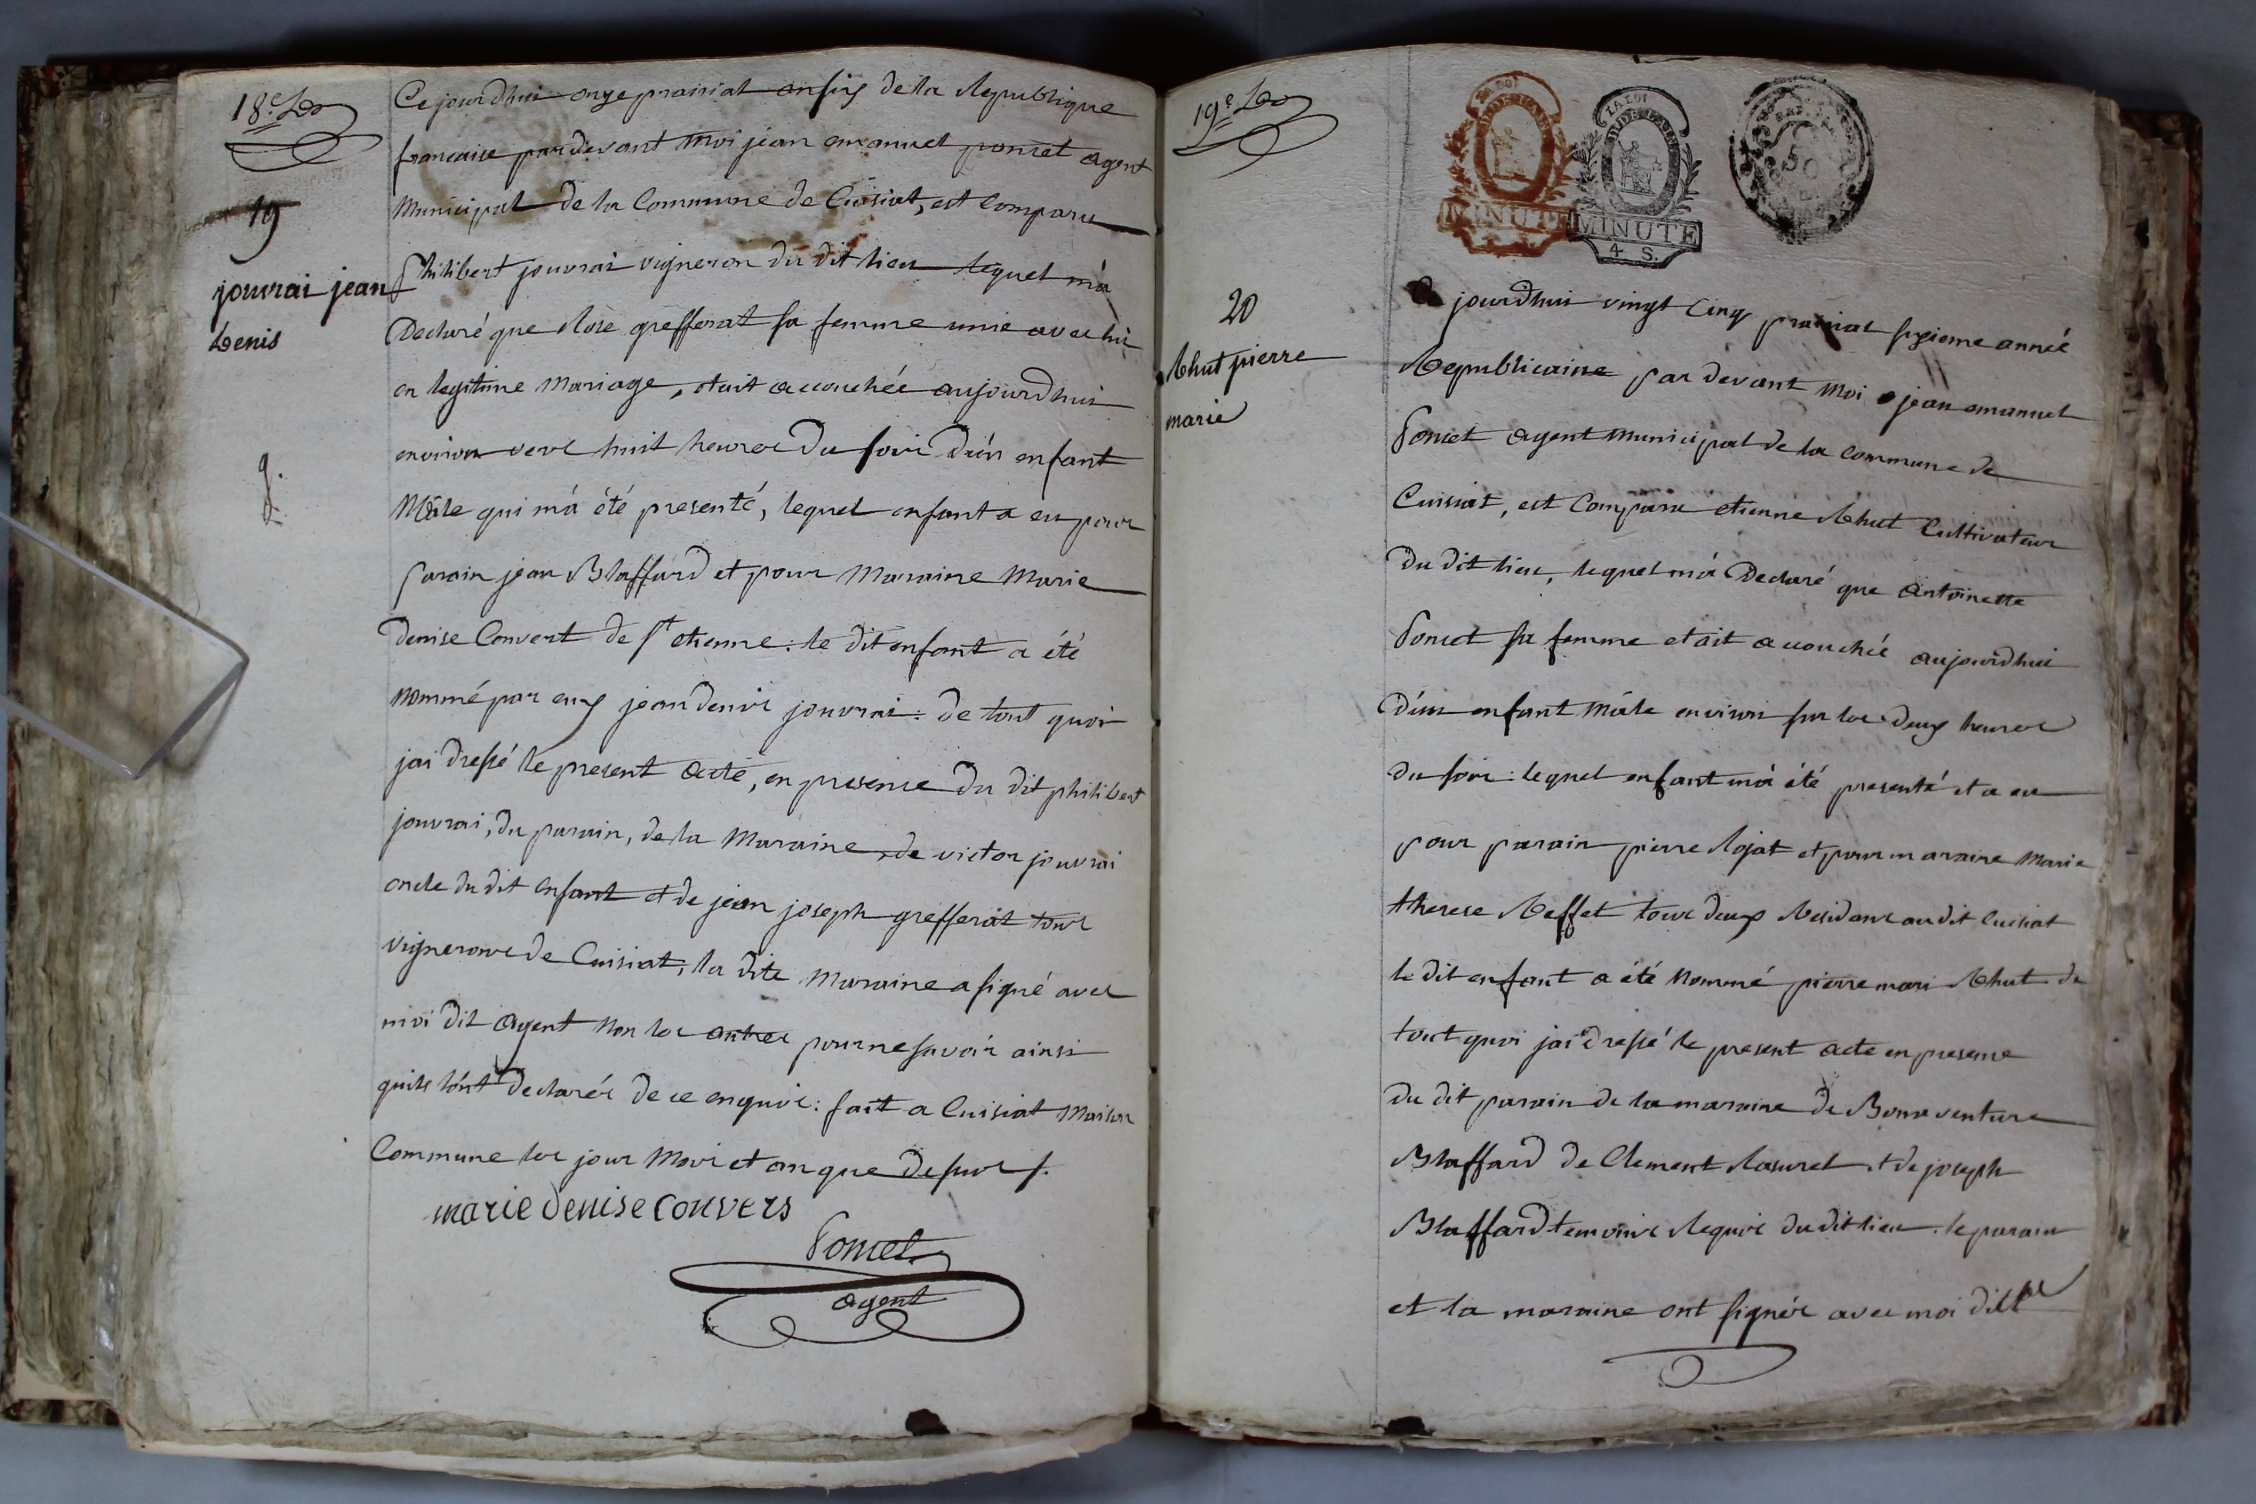 18.e
19
jouvrai jean
Denis
Ce jourdhui onze prairial an six de la Republique
francaise pardevant moi jean emanuel poncet agent
Municipal de la Commune de Cuisiat, est Comparu
philibert jouvrai vigneron du dit lieu lequel m'a
Declaré que Rose grefferat sa femme unie avec lui
en legitime Mariage, etait accouchée aujourdhui
environ vers huit heures Du soir D'un enfant
Mâle qui m'a été presenté, lequel enfant a eu pour
parain jean Blaffard et pour Maraine Marie
Denise Convert de St etienne : le dit enfant a été
nommé par eux jean denis jouvrai : de tout quoi
jai dressé le present acte, en presence Du dit philibert
jouvrai, du parain, de la Maraine, de victor jouvrai
oncle du dit enfant et de jean joseph grefferat tous
vignerons de Cuisiat, la dite Maraine a signé avec
moi dit agent non les autres pour ne savoir ainsi
quils lont declarés de ce enquis : fait a Cuisiat Maison
Commune les jour Mois et an que desus
marie denise convers
Poncet
agent
19.e
LA LOI
MINUTE
LA LOI
MINUTE
4 S.
50
20
Rhut pierre
marie
Ce jourdhui vingt Cinq prairial sixieme année
Republicaine par devant Moi jean emanuel
Poncet agent Municipal de la Commune de
Cuisiat, est Comparu etienne Rhut Cultivateur
Du dit lieu, lequel m'a Declaré que antoinette
Poncet sa femme etait accouchée aujourdhui
d'un enfant Mâle environ sur les deux heures
du soir : lequel enfant m'a été presenté et a eu
pour parain pierre Rojat et pour maraine Marie
therese Reffet tous deux Residans au dit Cuisiat
le dit enfant a été Nommé pierre mari Rhut de
tout quoi jai dressé le present acte en presence
du dit parain de la maraine de Bonaventure
Blaffard de Clement et de joseph
Blaffard temoins Requis du dit lieu . le parain
et la maraine ont signés avec moi dit